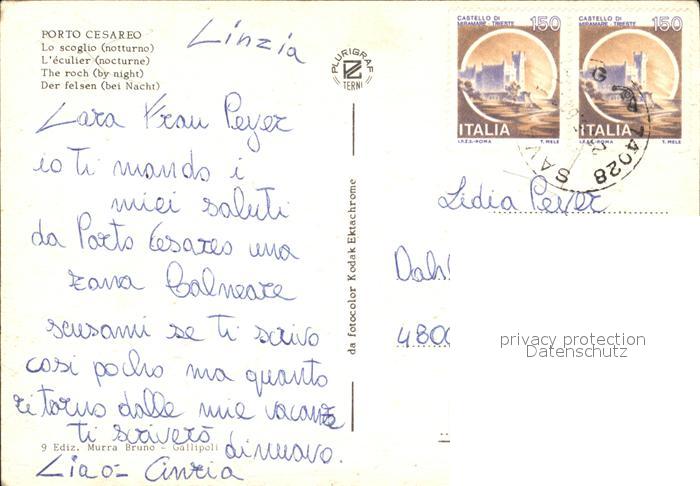 PORTO CESAREO
Lo scoglio (notturno)
L'éculier (nocturne)
The roch (by night)
Der felsen (bei Nacht)
Cinzia
PLURIGRAF
TERNI
CASTELLO DI
MIRAMARE - TRIESTE
150
ITALIA
I.P.Z.S.-ROMA
T. MELE
CASTELLO DI
MIRAMARE - TRIESTE
150
ITALIA
I.P.Z.S.-ROMA
T. MELE
74028 SAV
Cara Frau Peyer
io ti mando i
miei saluti
da Porto Cesareo una
zona Balneare
scusami se ti scrivo
cosi pocho ma quanto
ritorno dalle mie vacanze
ti scriverò di nuovo.
Ciao- Cinzia
9 Ediz. Murra Bruno - Gallipoli
da fotocolor Kodak Ektachrome
Lidia Peyer
Dahl
480
privacy protection
Datenschutz